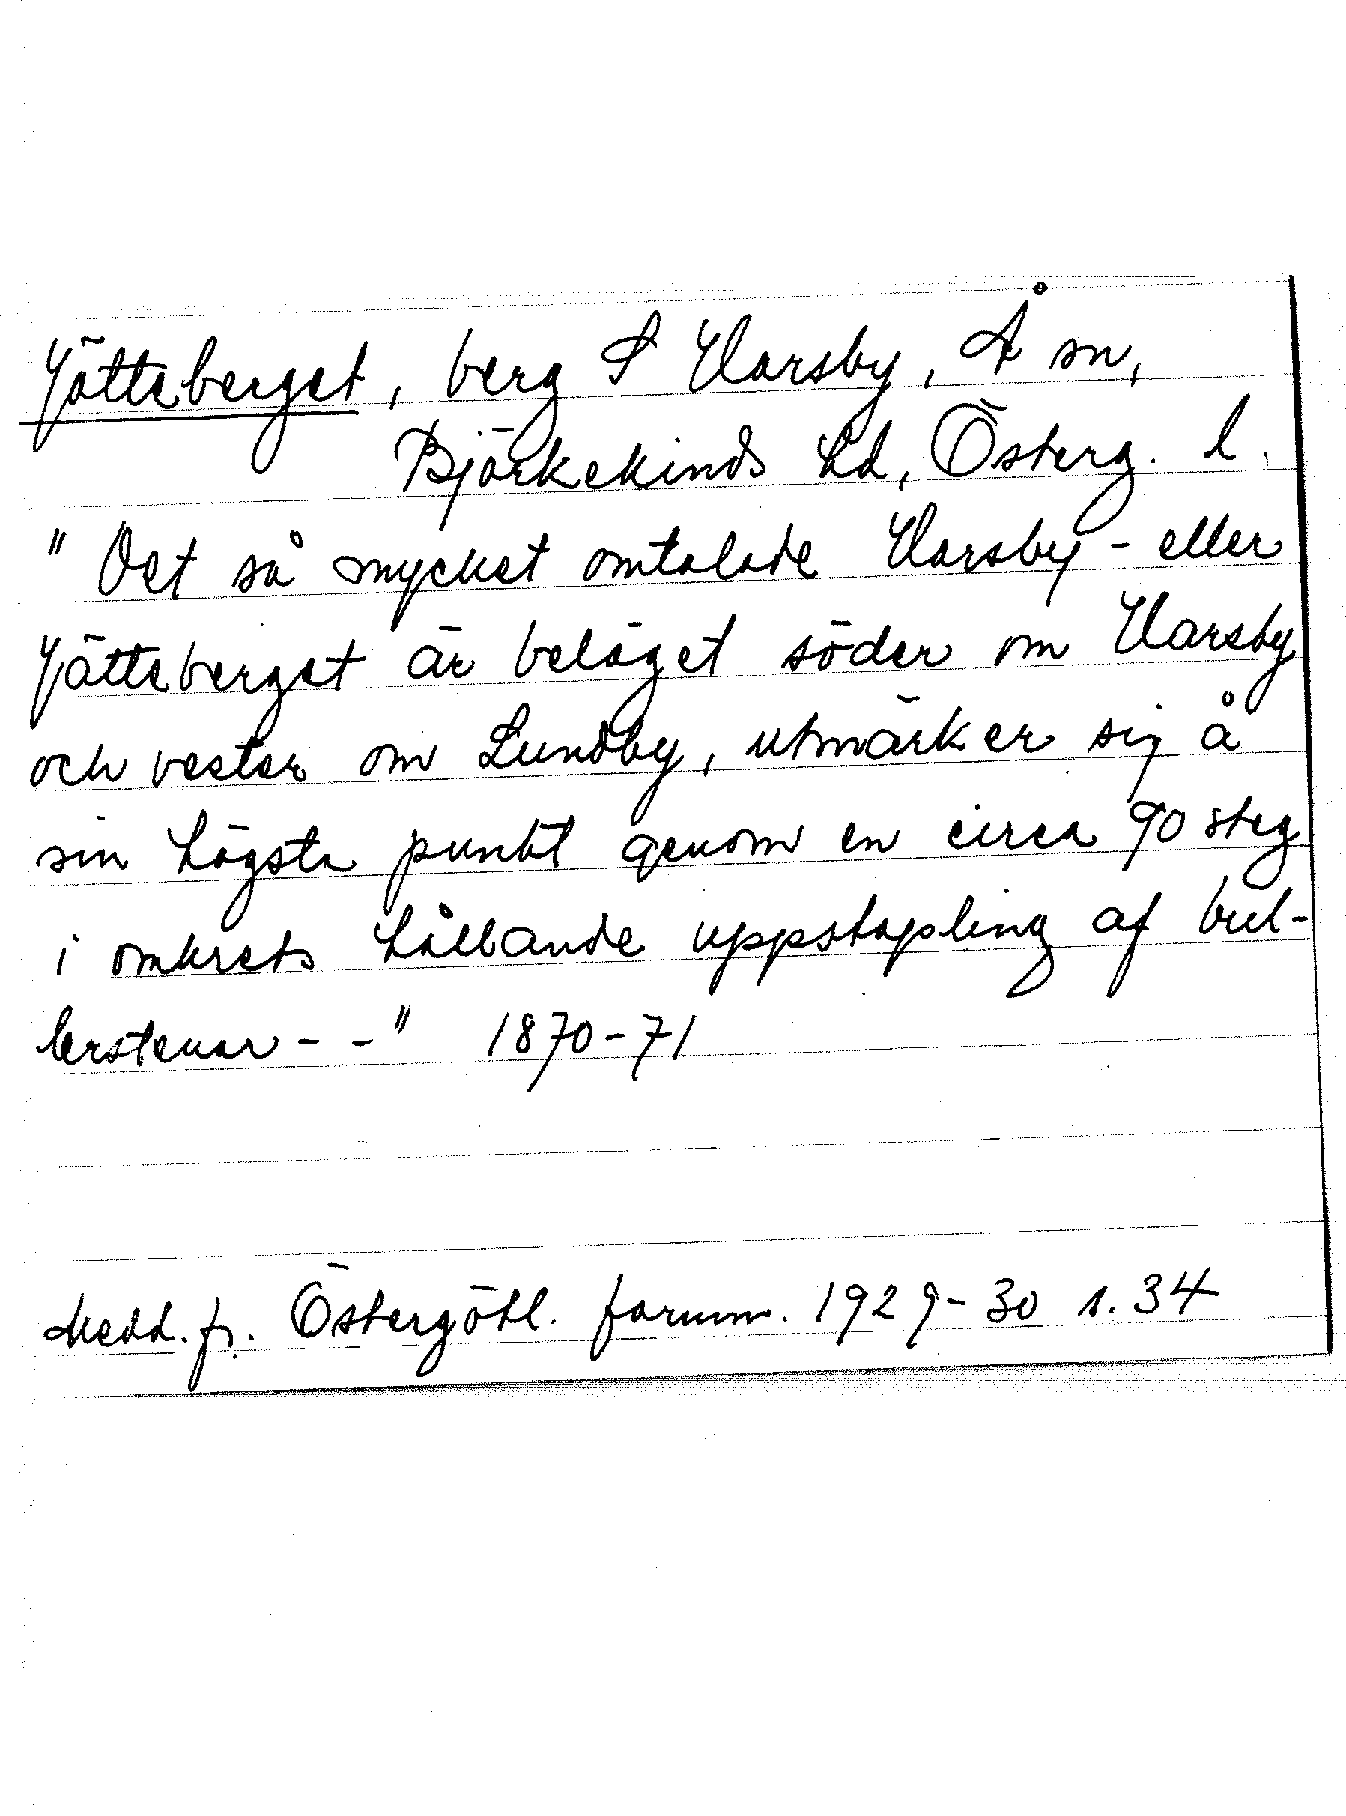 Jätteberget, berg S Varsby, Å sn,
Björkekinds hd, Österg. l.
" Det så mycket omtalade Varsby- eller
Jätteberget är beläget söder om Varsby
och vester om Lundby, utmärker sig å
sin högsta punkt genom en circa 90 steg
i omkrets hållande uppstapling af bul-
lerstenar - - " 1870-71
Medd. fr. Östergötl. fornm. 1929-30 s. 34